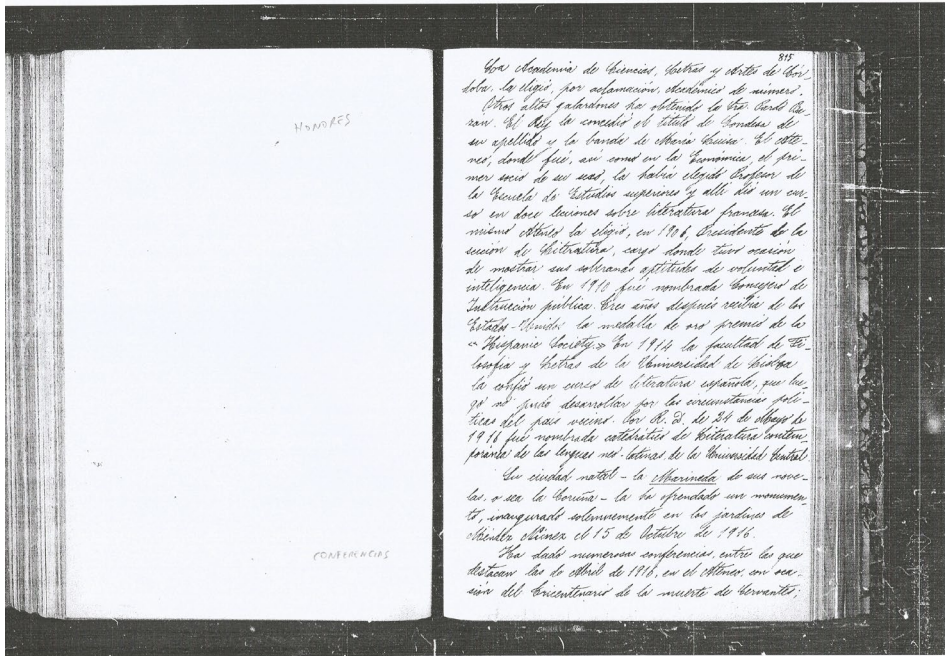 HONORES
CONFERENCIAS
815
La Academia de Ciencias, Letras y Artes de Cór-
doba, la eligió, por aclamación, Académico de número.
Otros altos galardones ha obtenido la Sra. Pardo Ba-
zán. El Rey la concedió el título de Condesa de
su apellido y la banda de María Luisa. El Ate-
neo, donde fué, así como en la Económica, el pri-
mer socio de su sexo, la había elegido Profesor de
la Escuela de Estudios superiores y allí dió un cur-
so en doce lecciones sobre literatura francesa. El
mismo Ateneo la eligió, en 1906, Presidente de la
sección de Literatura, cargo donde tuvo ocasión
de mostrar sus soberanas aptitudes de voluntad e
inteligencia. En 1910 fué nombrada Consejero de
Instrucción pública. Tres años después recibía de los
Estados-Unidos la medalla de oro premio de la
"Hispanic Society." En 1914 la facultad de Fi-
losofía y Letras de la Universidad de Lisboa
la confió un curso de literatura española, que lue-
go no pudo desarrollar por las circunstancias polí-
ticas del país vecino. Por R. D. de 24 de Mayo de
1916 fué nombrada catedrático de Literatura contem-
poránea de las lenguas neo-latinas de la Universidad Central.
Su ciudad natal - la Marineda de sus nove-
las, o sea la Coruña - la ha ofrendado un monumen-
to, inaugurado solemnemente en los jardines de
Méndez Núñez el 15 de Octubre de 1916.
Ha dado numerosas conferencias, entre las que
destacan las de Abril de 1916, en el Ateneo, con oca-
sión del Tricentenario de la muerte de Cervantes;